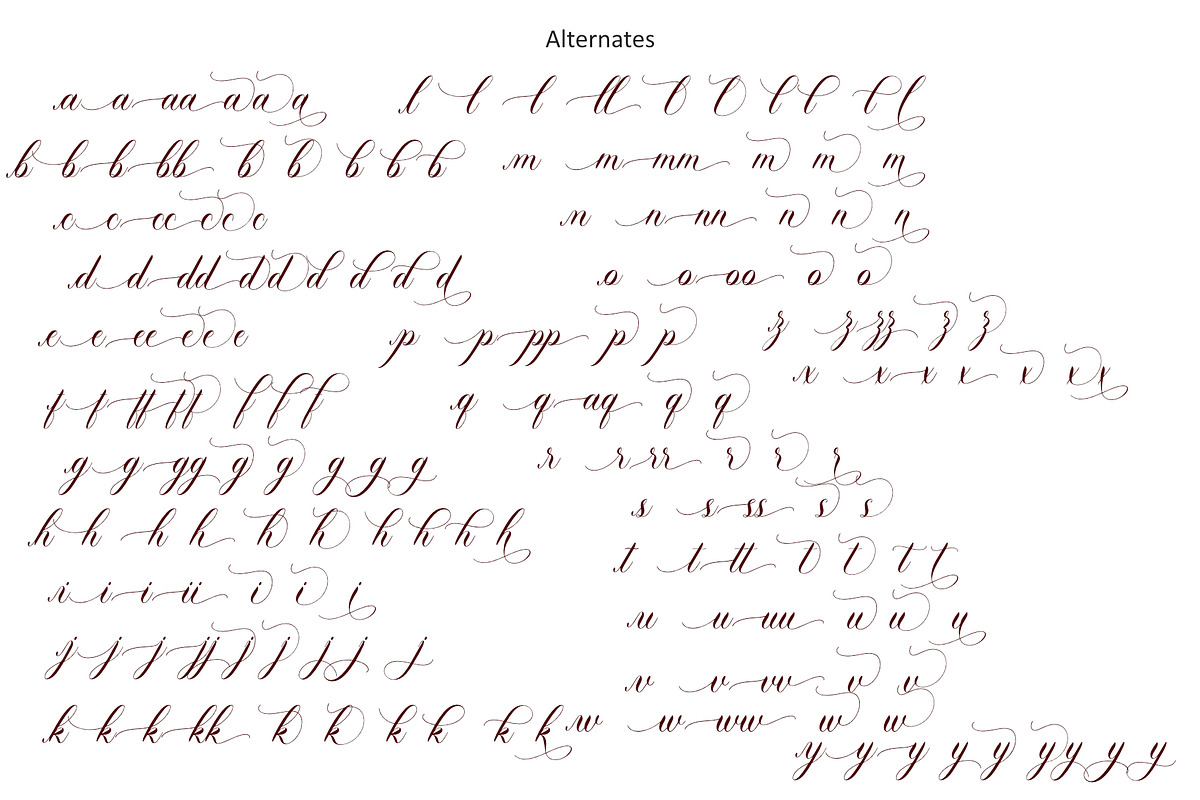 Alternates
a a aa a a a
b b b bb b b b b b
c c cc c c c
d d dd d d d d d d
e e ee e e e
f f ff f f f f f
g g gg g g g g g
h h h h h h h h h h
i i i ii i i i
j j j jj j j j j j
k k k kk k k k k k k
l l l ll l l l l l l
m m mm m m m
n n nn n n n
o o oo o o
p p pp p p
q q qq q q
r r rr r r r
s s ss s s
t t tt t t t t
u u uu u u u
v v vv v v
w w ww w w
z z zz z z
x x x x x x x
y y y y y y y y y